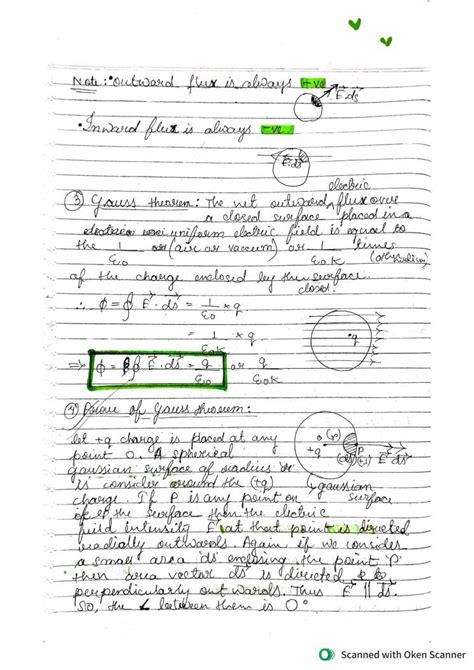 Note: • Outward flux is always +ve
E ds
• Inward flux is always -ve
E ds
③ Gauss theorem: The net outward electric flux over
a closed surface placed in a
uniform electric field is equal to
the 1/ε0 (air or vaccum) or 1/ε0K times
of the charge enclosed by the surface.
closed.
∴ ϕ = ∮ E · ds = 1/ε0 × q
= 1/ε0K × q
q
⇒ ϕ = ∮ E · ds = q/ε0 or q/ε0K
Prove of Gauss theorem:
let +q charge is placed at any
point O. A spherical
gaussian surface of radius 'r'
is consider around the (+q)
charge. If P is any point on
of the surface then the electric
field intensity E at that point is directed
radially outwards. Again if we consider
a small area 'ds' enclosing the point 'P'
then area vector ds is directed
perpendicularly outwards. Thus E || ds.
So, the ∠ between them is 0°
+q
O (r) P
E ds
gaussian
surface
Scanned with Oken Scanner